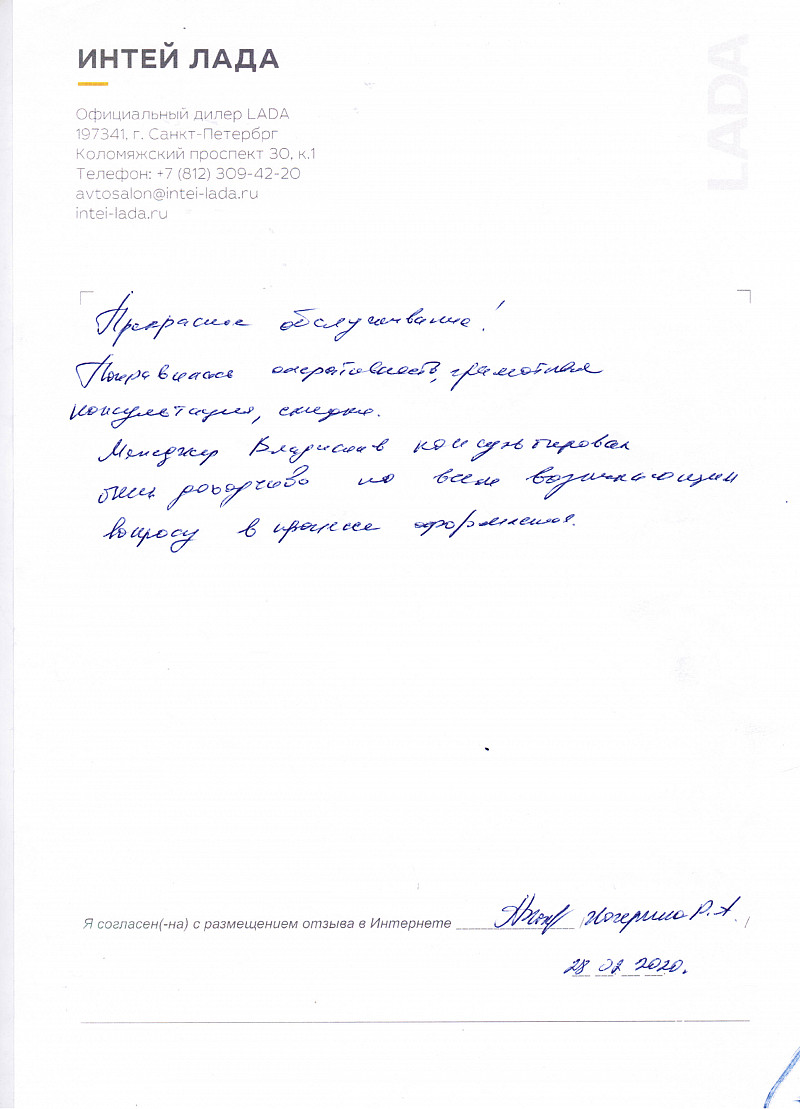 ИНТЕЙ ЛАДА
LADA
Официальный дилер LADA
197341, г. Санкт-Петербрг
Коломяжский проспект 30, к.1
Телефон: +7 (812) 309-42-20
avtosalon@intei-lada.ru
intei-lada.ru
Прекрасное обслуживание!
Понравилась оперативность, грамотная
консультация, скидки.
Менеджер Владислав консультировал
доходчиво по всем возникающим
вопросу в процессе оформления.
Я согласен(-на) с размещением отзыва в Интернете Р.А.
28 02 2020.